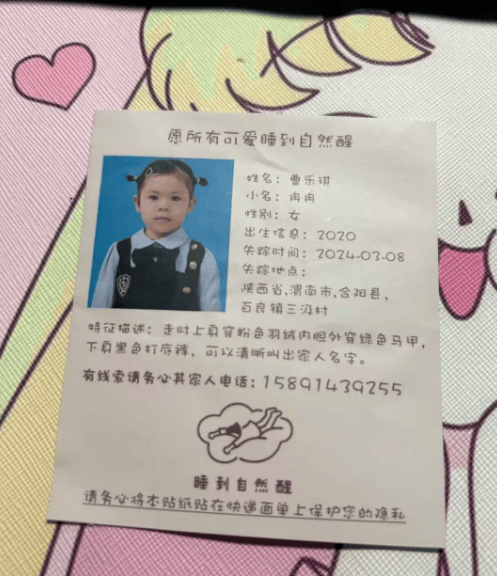 愿所有可爱睡到自然醒
姓名：曹乐琪
小名：冉冉
性别：女
出生信息：2020
失踪时间：2024-03-08
失踪地点：
陕西省,渭南市,合阳县,
百良镇三汲村
特征描述：走时上身穿粉色羽绒内胆外穿绿色马甲，
下身黑色打底裤，可以清晰叫出家人名字。
有线索请务必其家人电话：15891439255
睡到自然醒
请务必将本贴纸贴在快递面单上保护您的隐私